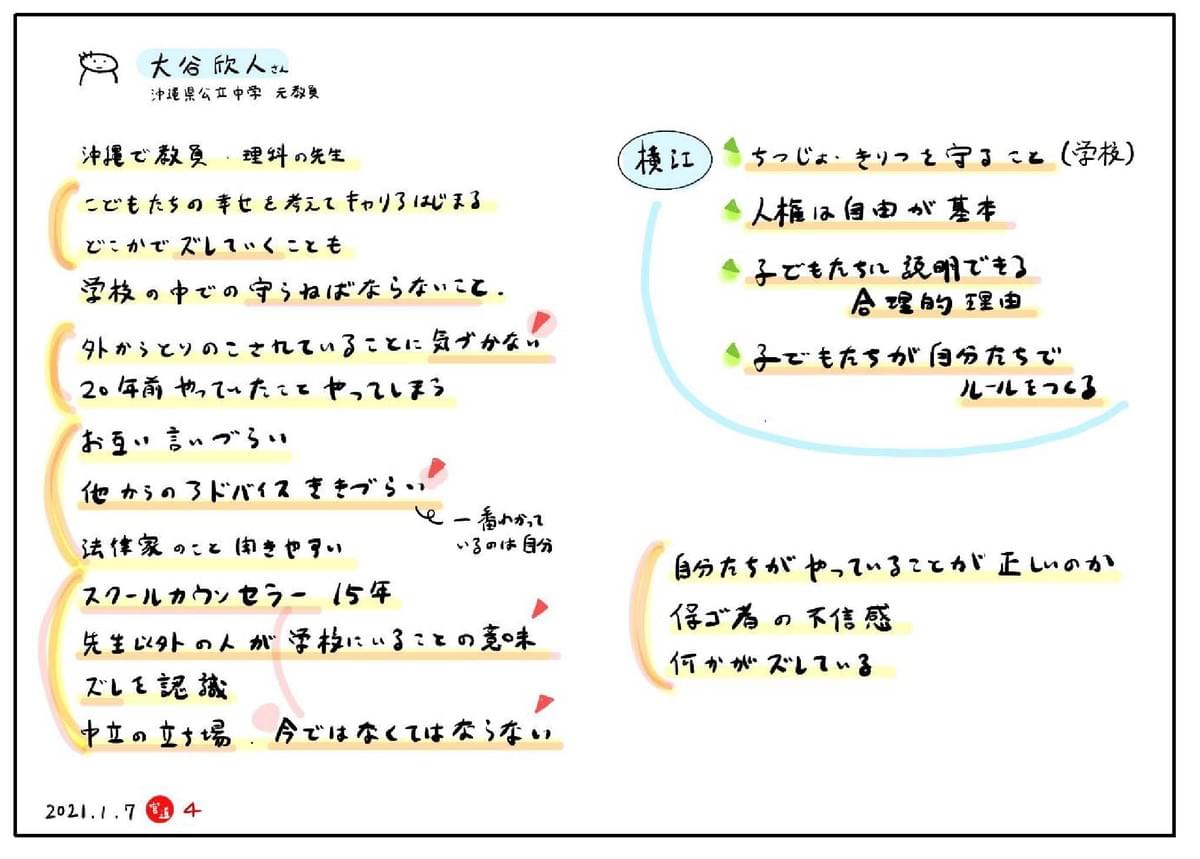 大谷欣人さん
沖縄県公立中学 元教員
沖縄で教員．理科の先生
こどもたちの幸せを考えてキャリアはじまる
どこかでズレていくことも
学校の中での守らねばならないこと．
外からとりのこされていることに気づかない
20年前やっていたことやってしまう
お互い言いづらい
他からのアドバイスききづらい
一番わかって
いるのは自分
法律家のこと聞きやすい
スクールカウンセラー 15年
先生以外の人が学校にいることの意味
ズレを認識
中立の立ち場．今ではなくてはならない
横江
ちつじょ・きりつを守ること(学校)
人権は自由が基本
子どもたちに説明できる
合理的理由
子どもたちが自分たちで
ルールをつくる
自分たちがやっていることが正しいのか
保ゴ者の不信感
何かがズレている
2021.1.7 4